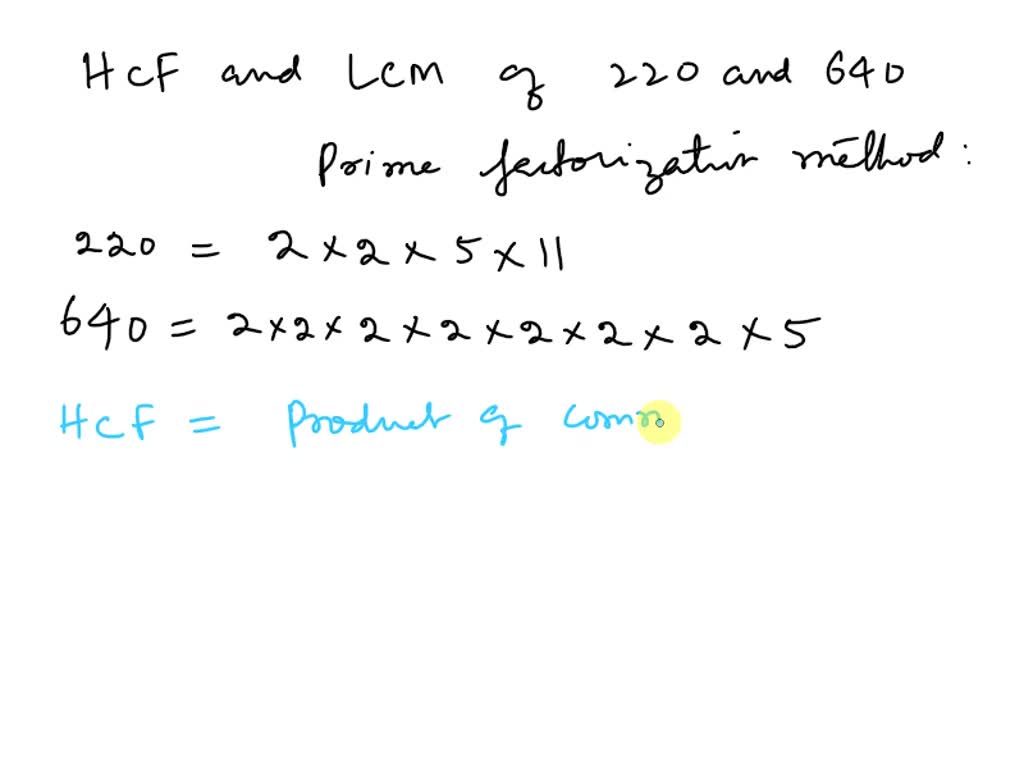 HCF and LCM of 220 and 640
Prime factorization method:
220 = 2 × 2 × 5 × 11
640 = 2 × 2 × 2 × 2 × 2 × 2 × 2 × 5
HCF = Product of comm